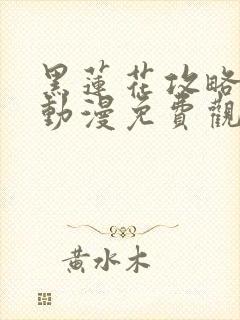 黑蓮花攻略
動漫免費觀
黃水木